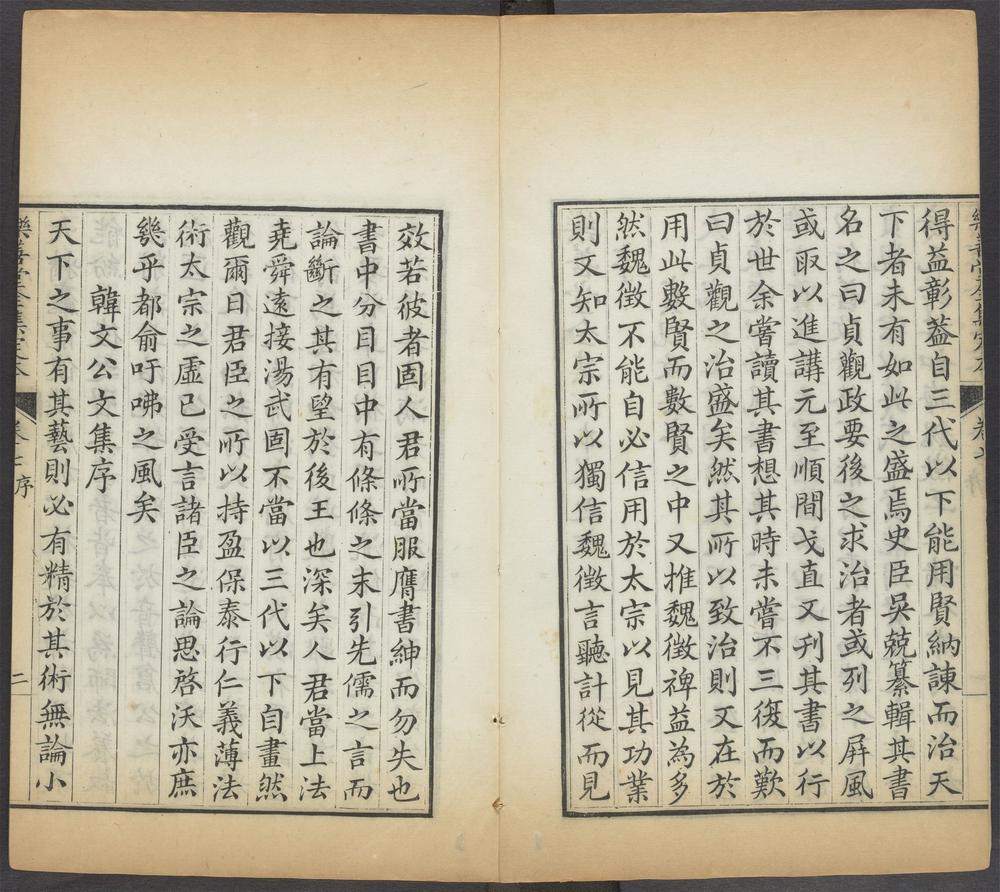 樂善堂全集定本　卷七　序
得益彰葢自三代以下能用賢納諫而治天
下者未有如此之盛焉史臣吳兢纂輯其書
名之曰貞觀政要後之求治者或列之屏風
或取以進講元至順間戈直又刊其書以行
於世余嘗讀其書想其時未嘗不三復而歎
曰貞觀之治盛矣然其所以致治則又在於
用此數賢而數賢之中又推魏徵裨益為多
然魏徵不能自必信用於太宗以見其功業
則又知太宗所以獨信魏徵言聽計從而見
效若彼者固人君所當服膺書紳而勿失也
書中分目目中有條條之末引先儒之言而
論斷之其有望於後王也深矣人君當上法
堯舜遠接湯武固不當以三代以下自畫然
觀爾日君臣之所以持盈保泰行仁義薄法
術太宗之虛已受言諸臣之論思啓沃亦庶
幾乎都俞吁咈之風矣
韓文公文集序
天下之事有其藝則必有精於其術無論小
樂善堂全集定本　卷七　序　二